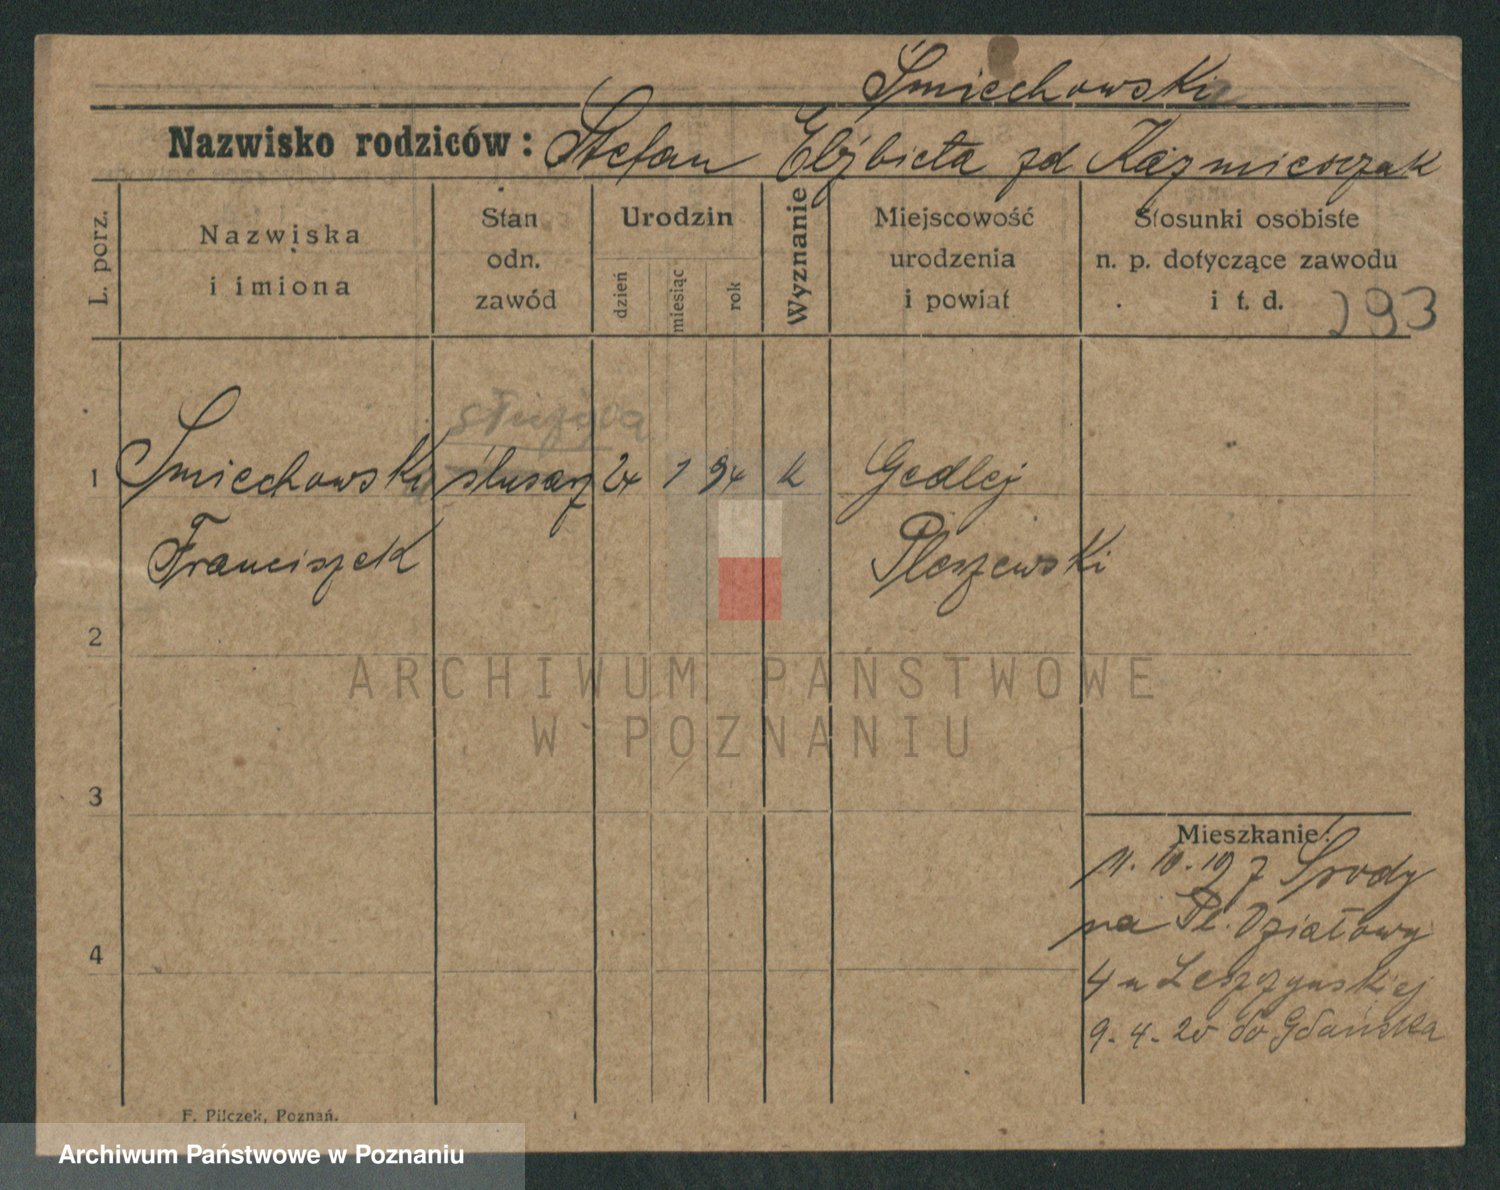 Śmiechowski
Nazwisko rodziców: Stefan Elżbieta zd Kaźmierczak
L. porz.
Nazwiska
i imiona
Stan
odn.
zawód
Urodzin
dzień
miesiąc
rok
Wyznanie
Miejscowość
urodzenia
i powiat
Stosunki osobiste
n. p. dotyczące zawodu
i t. d.
293
służąca
1 Śmiechowski ślusarz 24 1 94 k Gedlej
Franciszek Pleszewski
2
ARCHIWUM PAŃSTWOWE
W POZNANIU
3
Mieszkanie:
11. 10. 19 z Srody
na Pl. Działowy
4 u Leszzynskiej
9. 4. 20 do Gdańska
4
F. Pilczek, Poznań.
Archiwum Państwowe w Poznaniu